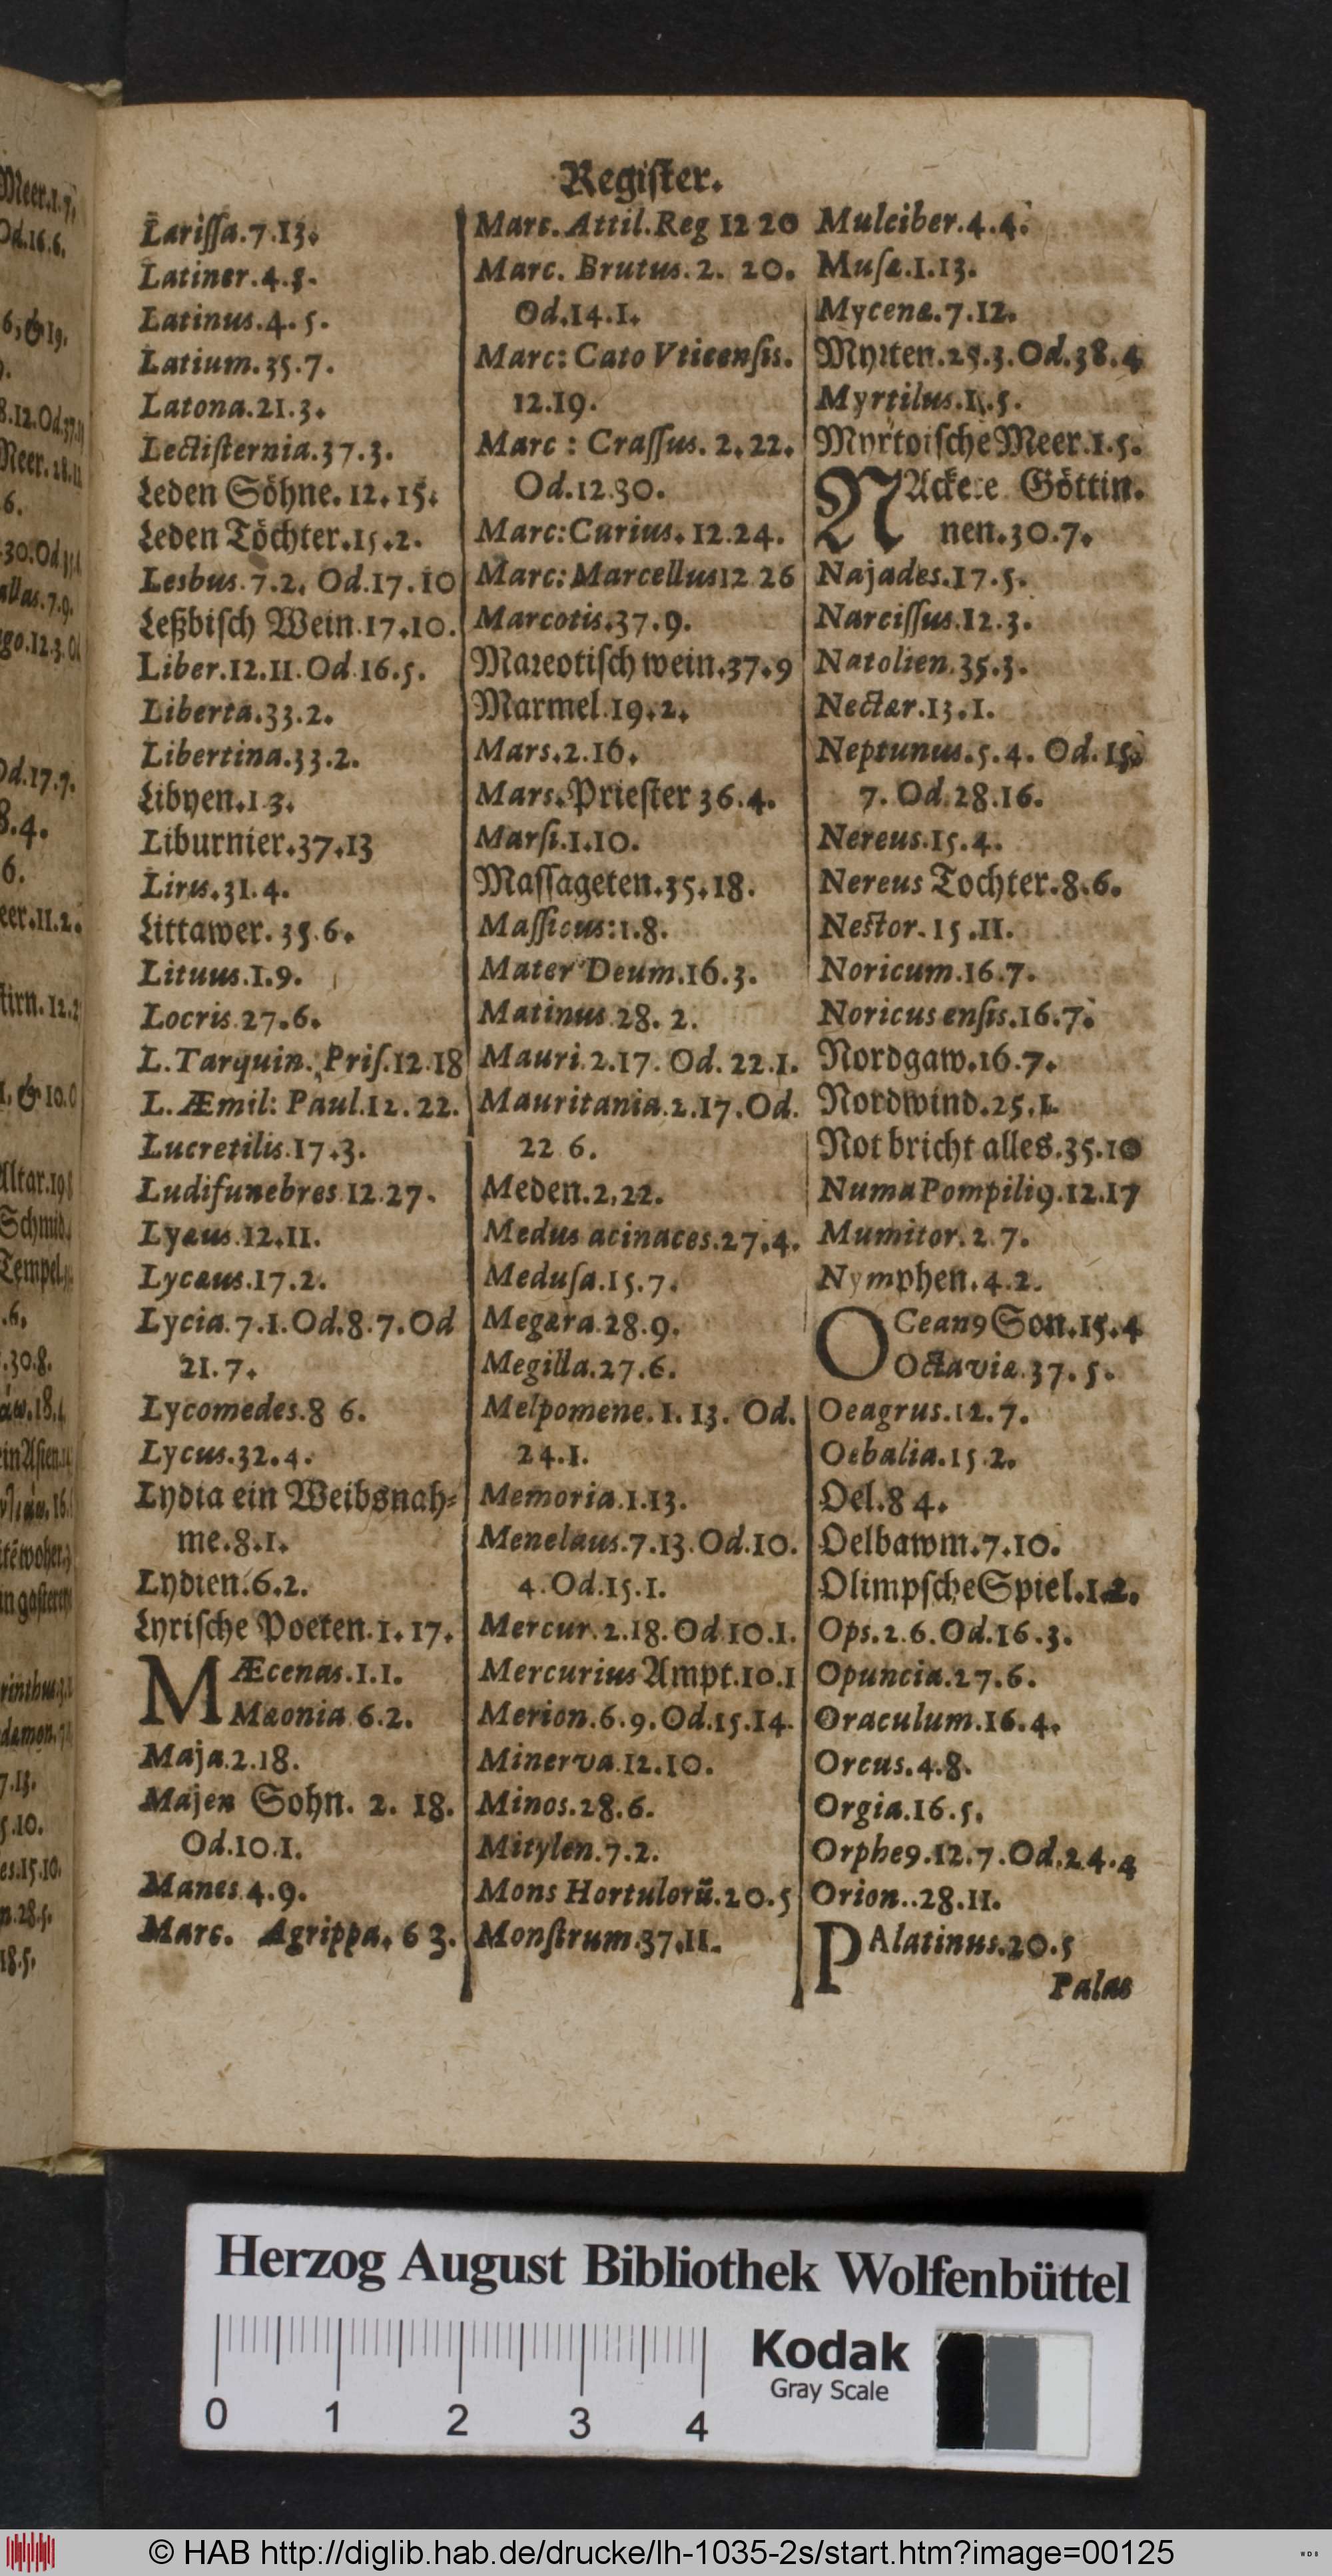 Register.
Lariſſa.7.13.
Latiner.4.5.
Latinus.4.5.
Latium.35.7.
Latona.21.3.
Lectiſternia.37.3.
Leden Söhne. 12. 15.
Leden Töchter.15.2.
Lesbus.7.2. Od.17.10
Leßbiſch Wein.17.10.
Liber.12.11.Od.16.5.
Liberta.33.2.
Libertina.33.2.
Libyen.1.3.
Liburnier.37.13
Liris.31.4.
Littawer. 35.6.
Lituus.1.9.
Locris.27.6.
L.Tarquin. Priſ.12.18
L.Æmil: Paul.12.22.
Lucretilis.17.3.
Ludifunebres.12.27.
Lyæus.12.11.
Lycæus.17.2.
Lycia.7.1.Od.8.7.Od
21.7.
Lycomedes.8 6.
Lycus.32.4.
Lydia ein Weibsnah⸗
me.8.1.
Lydien.6.2.
Lyriſche Poeten.1.17.
MÆcenas.1.1.
Mæonia 6.2.
Maja.2.18.
Majen Sohn. 2. 18.
Od.10.1.
Manes.4.9.
Marc. Agrippa. 6 3.
Marc.Attil.Reg 12 20
Marc. Brutus. 2. 20.
Od.14.1.
Marc: Cato Vticenſis.
12.19.
Marc : Craſſus. 2.22.
Od.12.30.
Marc:Curius. 12.24.
Marc: Marcellus12 26
Marcotis.37.9.
Mareotiſch wein.37.9
Marmel.19.2.
Mars.2.16.
Mars.Prieſter 36.4.
Marſi.1.10.
Maſſageten.35.18.
Maſſicus:1.8.
Mater Deum.16.3.
Matinus.28. 2.
Mauri.2.17. Od. 22.1.
Mauritania.2.17.Od.
22 6.
Meden.2,22.
Medus acinaces.27.4.
Meduſa.15.7.
Megæra.28.9.
Megilla.27.6.
Melpomene. 1. 13. Od.
24.1.
Memoria.1.13.
Menelaus.7.13.Od.10.
4.Od.15.1.
Mercur.2.18.Od.10.1.
Mercurius Ampt.10.1
Merion.6.9.Od.15.14.
Minerva.12.10.
Minos.28.6.
Mitylen.7.2.
Mons Hortulorũ.20.5
Monſtrum.37.11.
Mulciber.4.4.
Muſæ.1.13.
Mycenæ.7.12.
Myrten.25.3.Od.38.4
Myrtilus.1.5.
Myrtoiſche Meer.1.5.
NAckete Göttin.
nen.30.7.
Najades.17.5.
Narciſſus.12.3.
Natolien.35.3.
Nectar.13.1.
Neptunus.5.4. Od.15.
7. Od.28.16.
Nereus.15.4.
Nereus Tochter.8.6.
Neſtor.15.11.
Noricum.16.7.
Noricus enſis.16.7.
Nordgaw.16.7.
Nordwind.25.1.
Not bricht alles.35.10
Numa Pompiliꝰ.12.17
Mumitor.2.7.
Nymphen.4.2.
OCeanꝰ Son.15.4
Octaviæ.37.5.
Oeagrus.12.7.
Oebalia.15.2.
Oel.8 4.
Oelbawm.7.10.
OlimpſcheSpiel.1.2.
Ops.2.6.Od.16.3.
Opuncia.27.6.
Oraculum.16.4.
Orcus.4.8.
Orgia.16.5.
Orpheꝰ.12.7.Od.24.4
Orion..28.11.
PAlatinus.20.5
Palas
Herzog August Bibliothek Wolfenbüttel
0 1 2 3 4
Kodak
Gray Scale
© HAB http://diglib.hab.de/drucke/lh-1035-2s/start.htm?image=00125